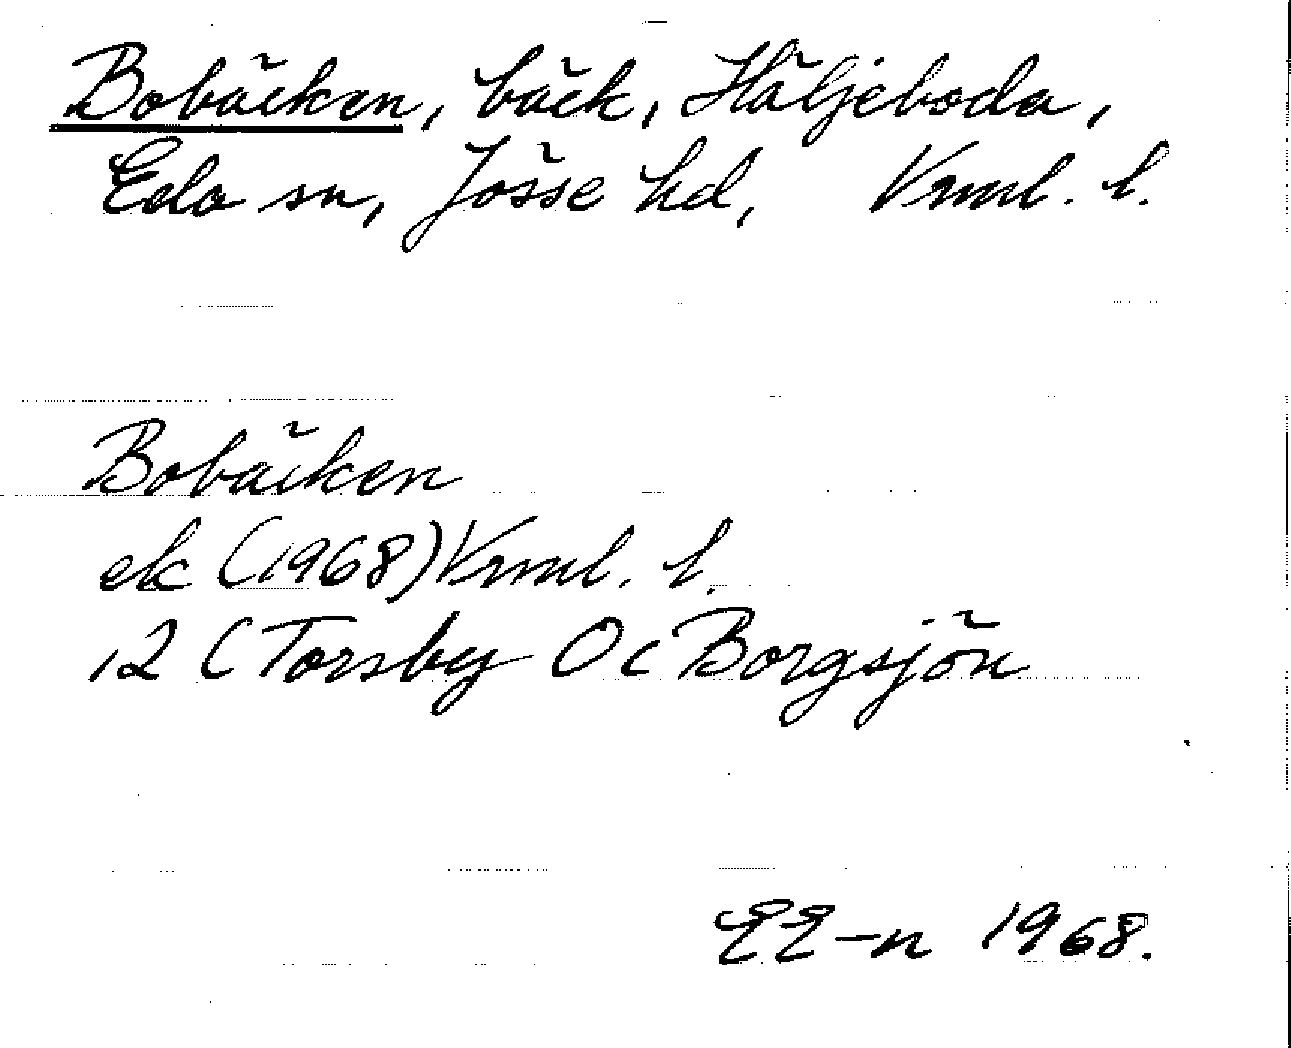 Bobäcken, bäck, Häljeboda,
Eda sn, Jösse hd, Vrml. l.
Bobäcken
ek (1968) Vrml. l.
12 C Torsby Oc Borgsjön
EE-n 1968.